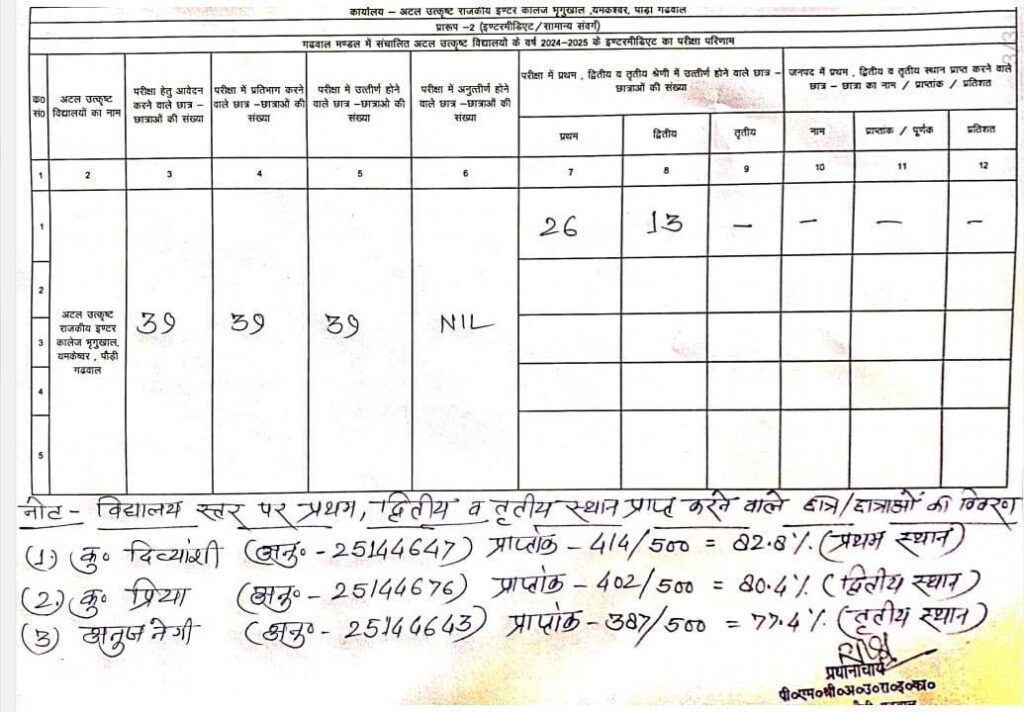 कार्यालय – अटल उत्कृष्ट राजकीय इण्टर कालेज भृगुखाल ,यमकेश्वर, पौढ़ी गढवाल
प्रारूप –2 (इण्टरमीडिएट/सामान्य संवर्ग)
गढवाल मण्डल में संचालित अटल उत्कृष्ट विद्यालयो के वर्ष 2024-2025 के इण्टरमीडिएट का परीक्षा परिणाम
क0 सं0
अटल उत्कृष्ट विद्यालयों का नाम
परीक्षा हेतु आवेदन करने वाले छात्र – छात्राओं की संख्या
परीक्षा में प्रतिभाग करने वाले छात्र –छात्राओं की संख्या
परीक्षा में उत्तीर्ण होने वाले छात्र –छात्राओ की संख्या
परीक्षा में अनुत्तीर्ण होने वाले छात्र –छात्राओं की संख्या
परीक्षा में प्रथम , द्वितीय व तृतीय श्रेणी में उत्तीर्ण होने वाले छात्र – छात्राओं की संख्या
जनपद में प्रथम , द्वितीय व तृतीय स्थान प्राप्त करने वाले छात्र – छात्रा का नाम / प्राप्तांक / प्रतिशत
प्रथम द्वितीय तृतीय नाम प्राप्तांक / पूर्णक प्रतिशत
1 2 3 4 5 6 7 8 9 10 11 12
1 26 13 – – – –
2
अटल उत्कृष्ट
राजकीय इण्टर 39 39 39 NIL
3 कालेज भृगुखाल,
यमकेश्वर , पौढ़ी
गढवाल
4
5
नोट - विद्यालय स्तर पर प्रथम, द्वितीय व तृतीय स्थान प्राप्त करने वाले छात्र/छात्राओं की विवरण
(1) कु० दिव्यांशी (अनु० - 25144647) प्राप्तांक - 414/500 = 82.8% (प्रथम स्थान)
(2) कु० प्रिया (अनु० - 25144676) प्राप्तांक - 402/500 = 80.4% (द्वितीय स्थान)
(3) अनुज नेगी (अनु० - 25144643) प्राप्तांक - 387/500 = 77.4% (तृतीय स्थान)
प्रधानाचार्य
पी०एम०श्री०अ०उ०रा०इ०का०